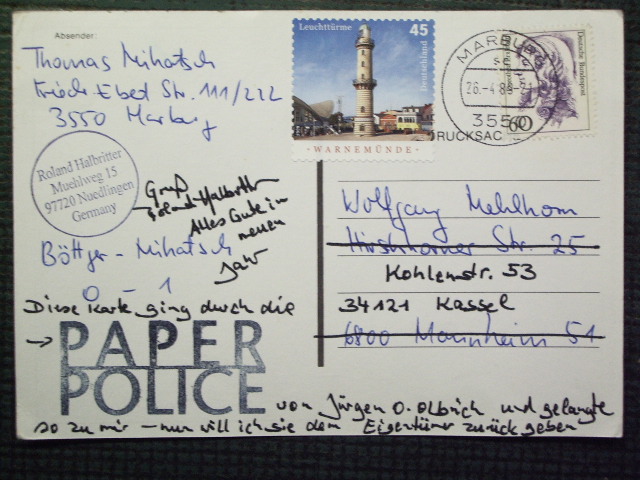 Absender:
Thomas Mihatsch
Friedr. Ebert Str. 111/222
3550 Marburg
Leuchttürme
45
Deutschland
· WARNEMÜNDE ·
MARBURG
26.-4.88-
3550
DRUCKSAC
Deutsche Bundespost
60
Roland Halbritter
Muehlweg 15
97720 Nuedlingen
Germany
Gruß
Roland Halbritter
Alles Gute im
neuen
Jahr
Böttger - Mihatsch
0 - 1
Wolfgang Mehlhorn
Hirschhorner Str. 25
Kohlenstr. 53
34121 Kassel
6800 Mannheim 51
Diese Karte ging durch die
→ PAPER
POLICE
von Jürgen O. Olbrich und gelangte
so zu mir – nun will ich sie dem Eigentümer zurück geben